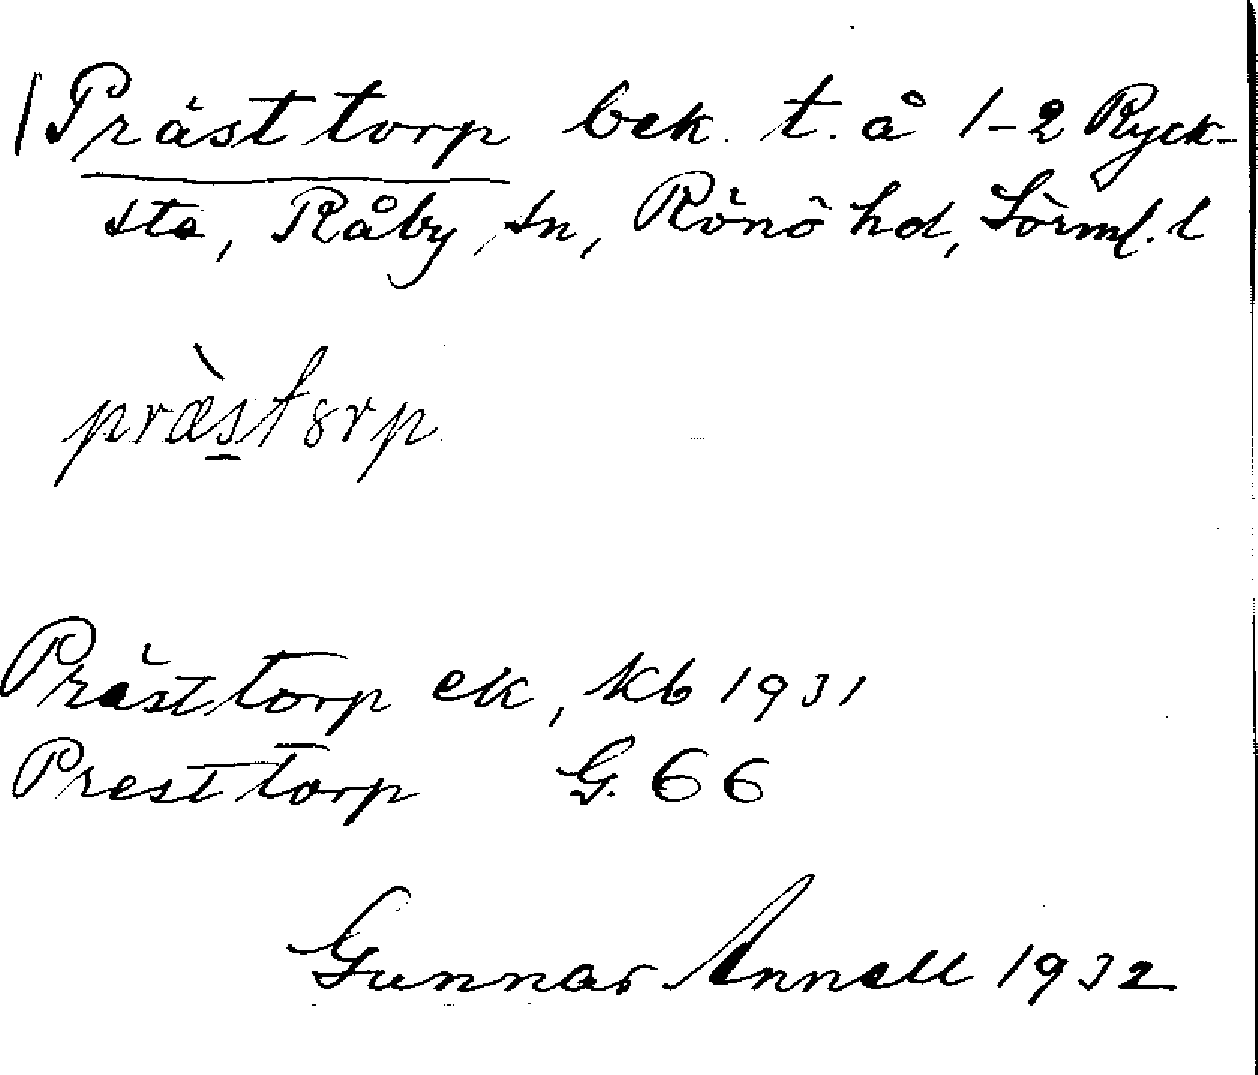 Prästtorp bek. t. å 1-2 Ryck-
sta, Råby sn, Rönö hd, Sörml. l
præ̀stårp
Prästtorp ek, kb 1931
Presttorp G. 66
Gunnar Annell 1932